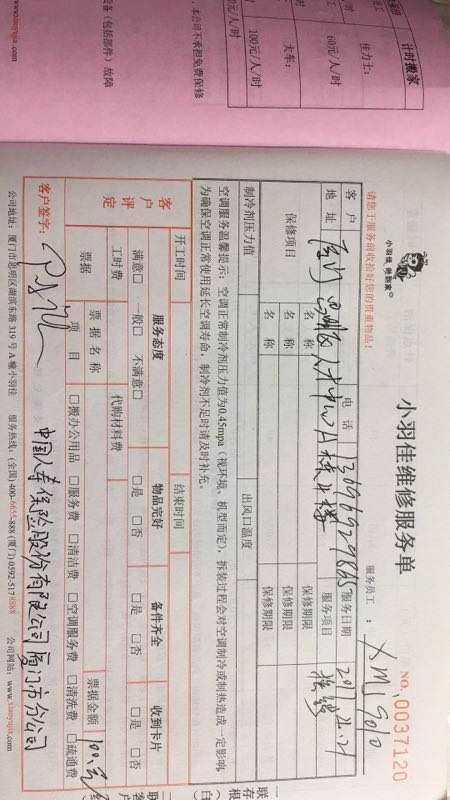 计时搬家
佳力士：
60元/人/时
大车：
100元/人/时
元/人/时
，本公司不承担免费保修
设备（包括部件）故障
www.xiaoyujia.com
小羽佳 到家
小羽佳维修服务单
请您于服务前收捡好您的贵重物品！
服务员工：XMJ5010
NO. 0037120
客户
电话 13696929865
服务日期 2017.4.21
地址
服务项目
保修项目
名称
保修期限
名称
保修期限
名称
保修期限
制冷剂压力值
出风口温度
空调服务温馨提示：空调正常制冷剂压力值为0.45mpa（视环境、机型而定），拆装过程会对空调制冷或制热造成一定影响，
为确保空调正常使用延长空调寿命，制冷剂不足时请及时补充。
开工时间
结束时间
客户评定
服务态度
物品完好
备件齐全
收到卡片
满意□ 一般□ 不满意□
□是 □否
□是 □否
□是 □否
工时费
代购材料费
票据
票据名称
票据金额 100元
项目
□搬办公用品 □服务费 □清洁费 □空调服务费 □清洗费 □疏通费
客户签字：
中国人寿保险股份有限公司厦门市分公司
公司地址：厦门市思明区湖滨东路 319 号 A 幢小羽佳
服务热线：(全国) 400-6655-888 (厦门) 0592-5178588
公司网站：www.xiaoyujia.com